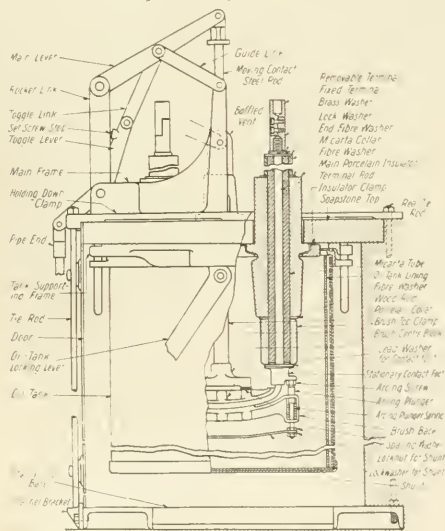 Main Lever
Rocker Link
Toggle Link
Set Screw Stop
Toggle Lever
Main Frame
Holding Down
Clamp
Pipe End
Tank Support-
ing Frame
Tie Rod
Door
Oil Tank
Locking Lever
Oil Tank
Bracket
Guide Link
Moving Contact
Steel Rod
Baffled
Vent
Removable Terminal
Fixed Terminal
Brass Washer
Lock Washer
End Fibre Washer
Micarta Collar
Fibre Washer
Main Porcelain Insulator
Terminal Rod
Insulator Clamp
Soapstone Top
Rod
Micarta Tube
Oil Tank Lining
Fibre Washer
Wood Rod
Collar
Brush Rod Clamp
Brush Centre Block
Lead Washer
Stationary Contact Foot
Arcing Screw
Arcing Plunger
Arcing Plunger Spring
Brush Back
Locknut for Shunt
Lockwasher for Shunt
Shunt